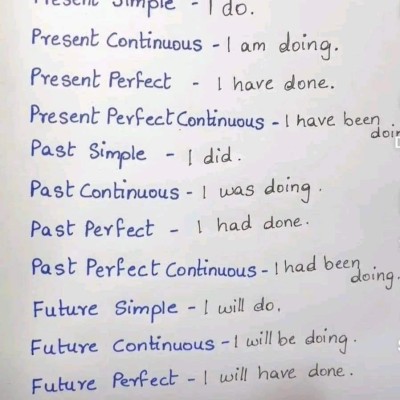 Present Simple - I do.
Present Continuous - I am doing.
Present Perfect - I have done.
Present Perfect Continuous - I have been
doin
Past Simple - I did.
Past Continuous - I was doing.
Past Perfect - I had done.
Past Perfect Continuous - I had been
doing.
Future Simple - I will do.
Future Continuous - I will be doing.
Future Perfect - I will have done.